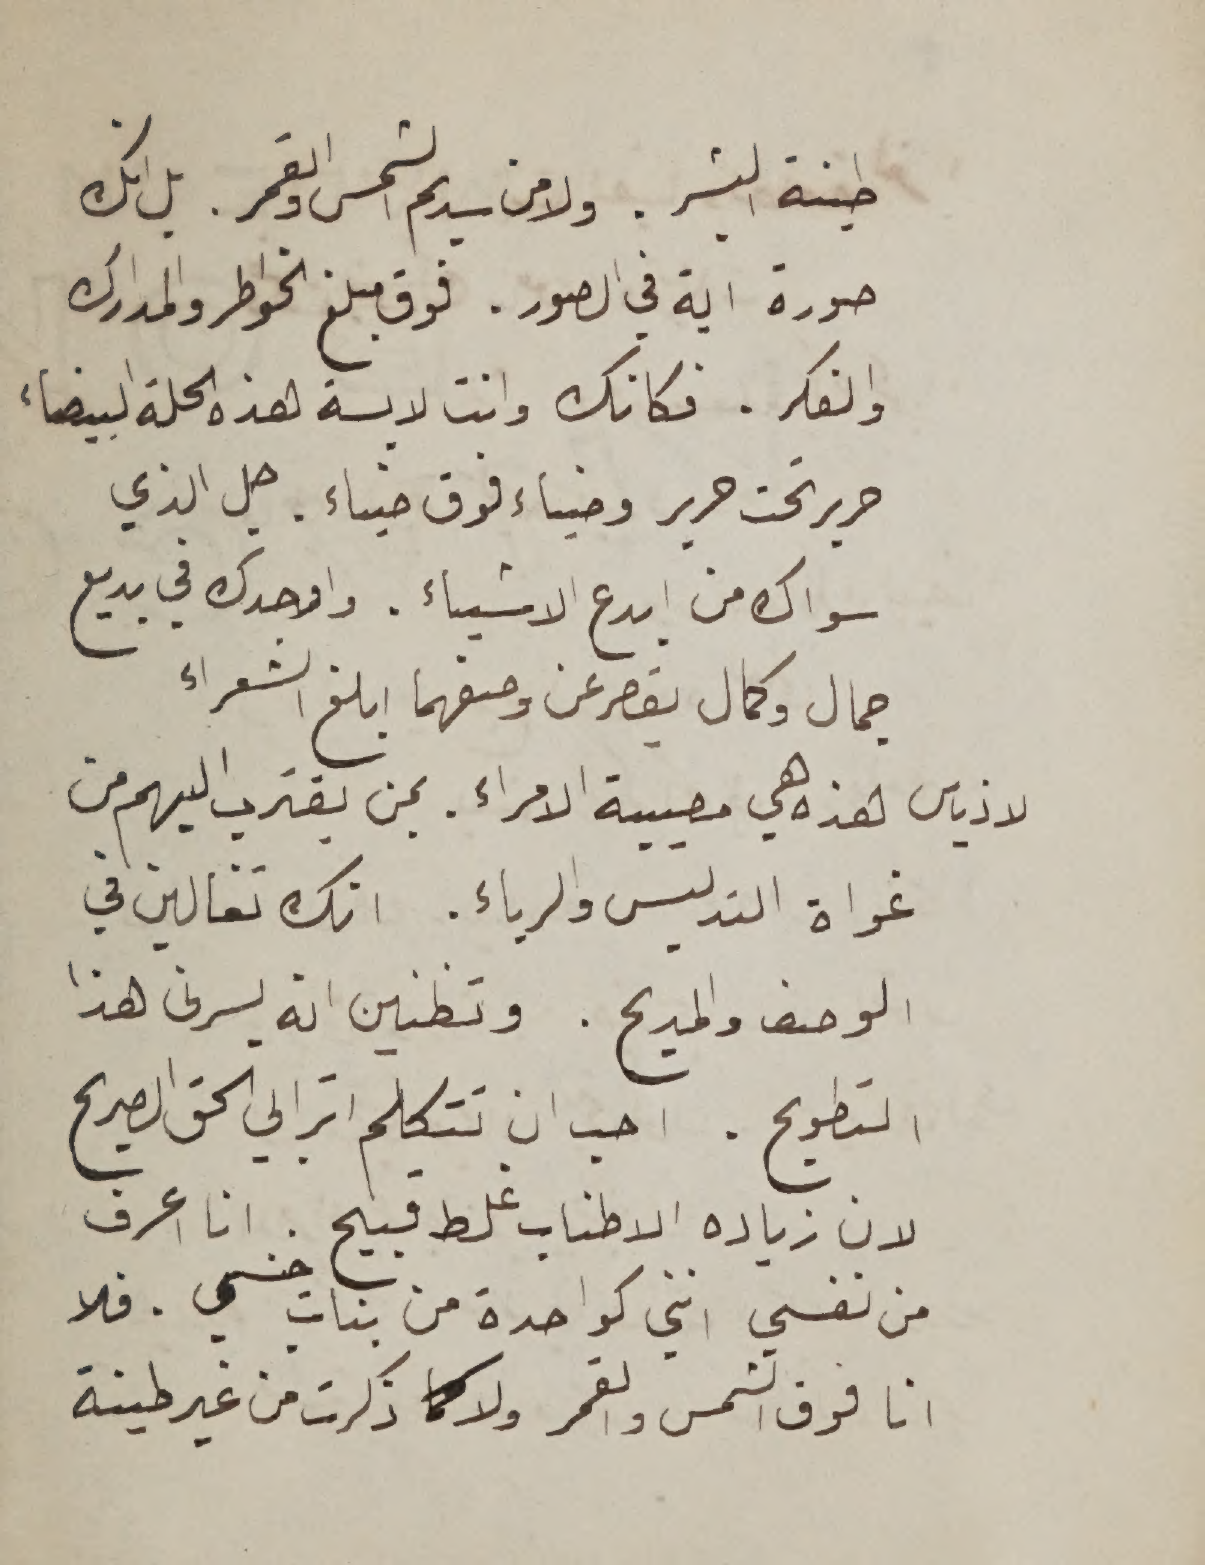 طينة البشر . ولا من سديم الشمس والقمر . بل انك
صورة اية في الصور . فوق مبلغ الخواطر والمدارك
والفكر . فكانك وانت لابسة هذه الحلة البيضاء
حرير تحت حرير وضياء فوق ضياء . جل الذي
سواك من ابدع الاشياء . واوجدك في بديع
جمال وكمال يقصر عن وصفهما ابلغ الشعراء
لاذياس هذه هي مصيبة الامراء . بمن يقترب اليهم من
غواة التدليس والرياء . انك تغالين في
الوصف والمديح . وتظنين انه يسرنى هذا
التطويح . احب ان تتكلم اترابي الحق الصريح
لان زياده الاطناب غلط قبيح . انا اعرف
من نفسي انني كواحدة من بنات جنسي . فلا
انا فوق الشمس والقمر ولا كما ذكرت من غير طينة